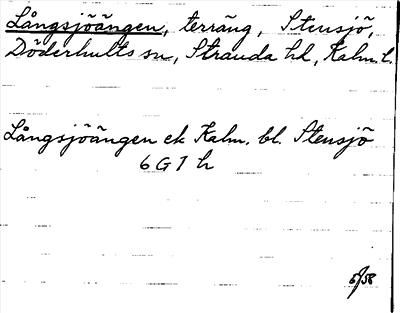 Långsjöängen, terräng, Stensjö,
Döderhults sn, Stranda hd, Kalm. l.
Långsjöängen ek Kalm. bl. Stensjö
6 G 1 h
5/58